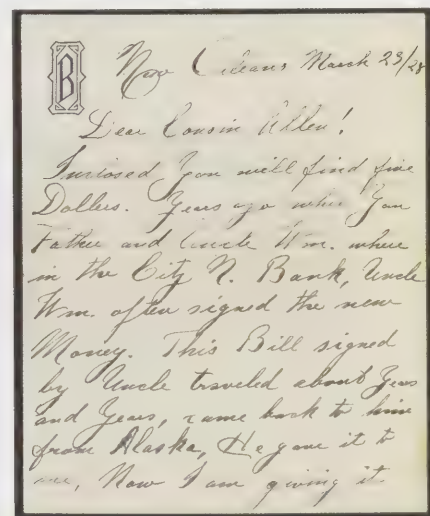 B
New Orleans March 23/28
Dear Cousin Allen!
Inclosed you will find five
Dollers. Years ago when You
Father and Uncle Wm. where
in the City N. Bank, Uncle
Wm. often signed the new
Money. This Bill signed
by Uncle traveled about Years
and Years, came back to him
from Alaska, He gave it to
me, Now I am giving it